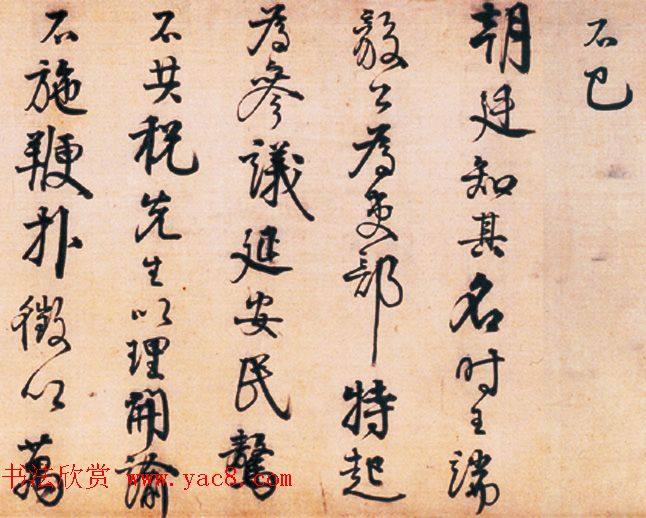 不已
朝廷知其名时王端
毅公為吏部特起
為參議延安民驁
不共税先生以理開諭
不施鞭扑徵以萬
书法欣赏 www.yac8.com